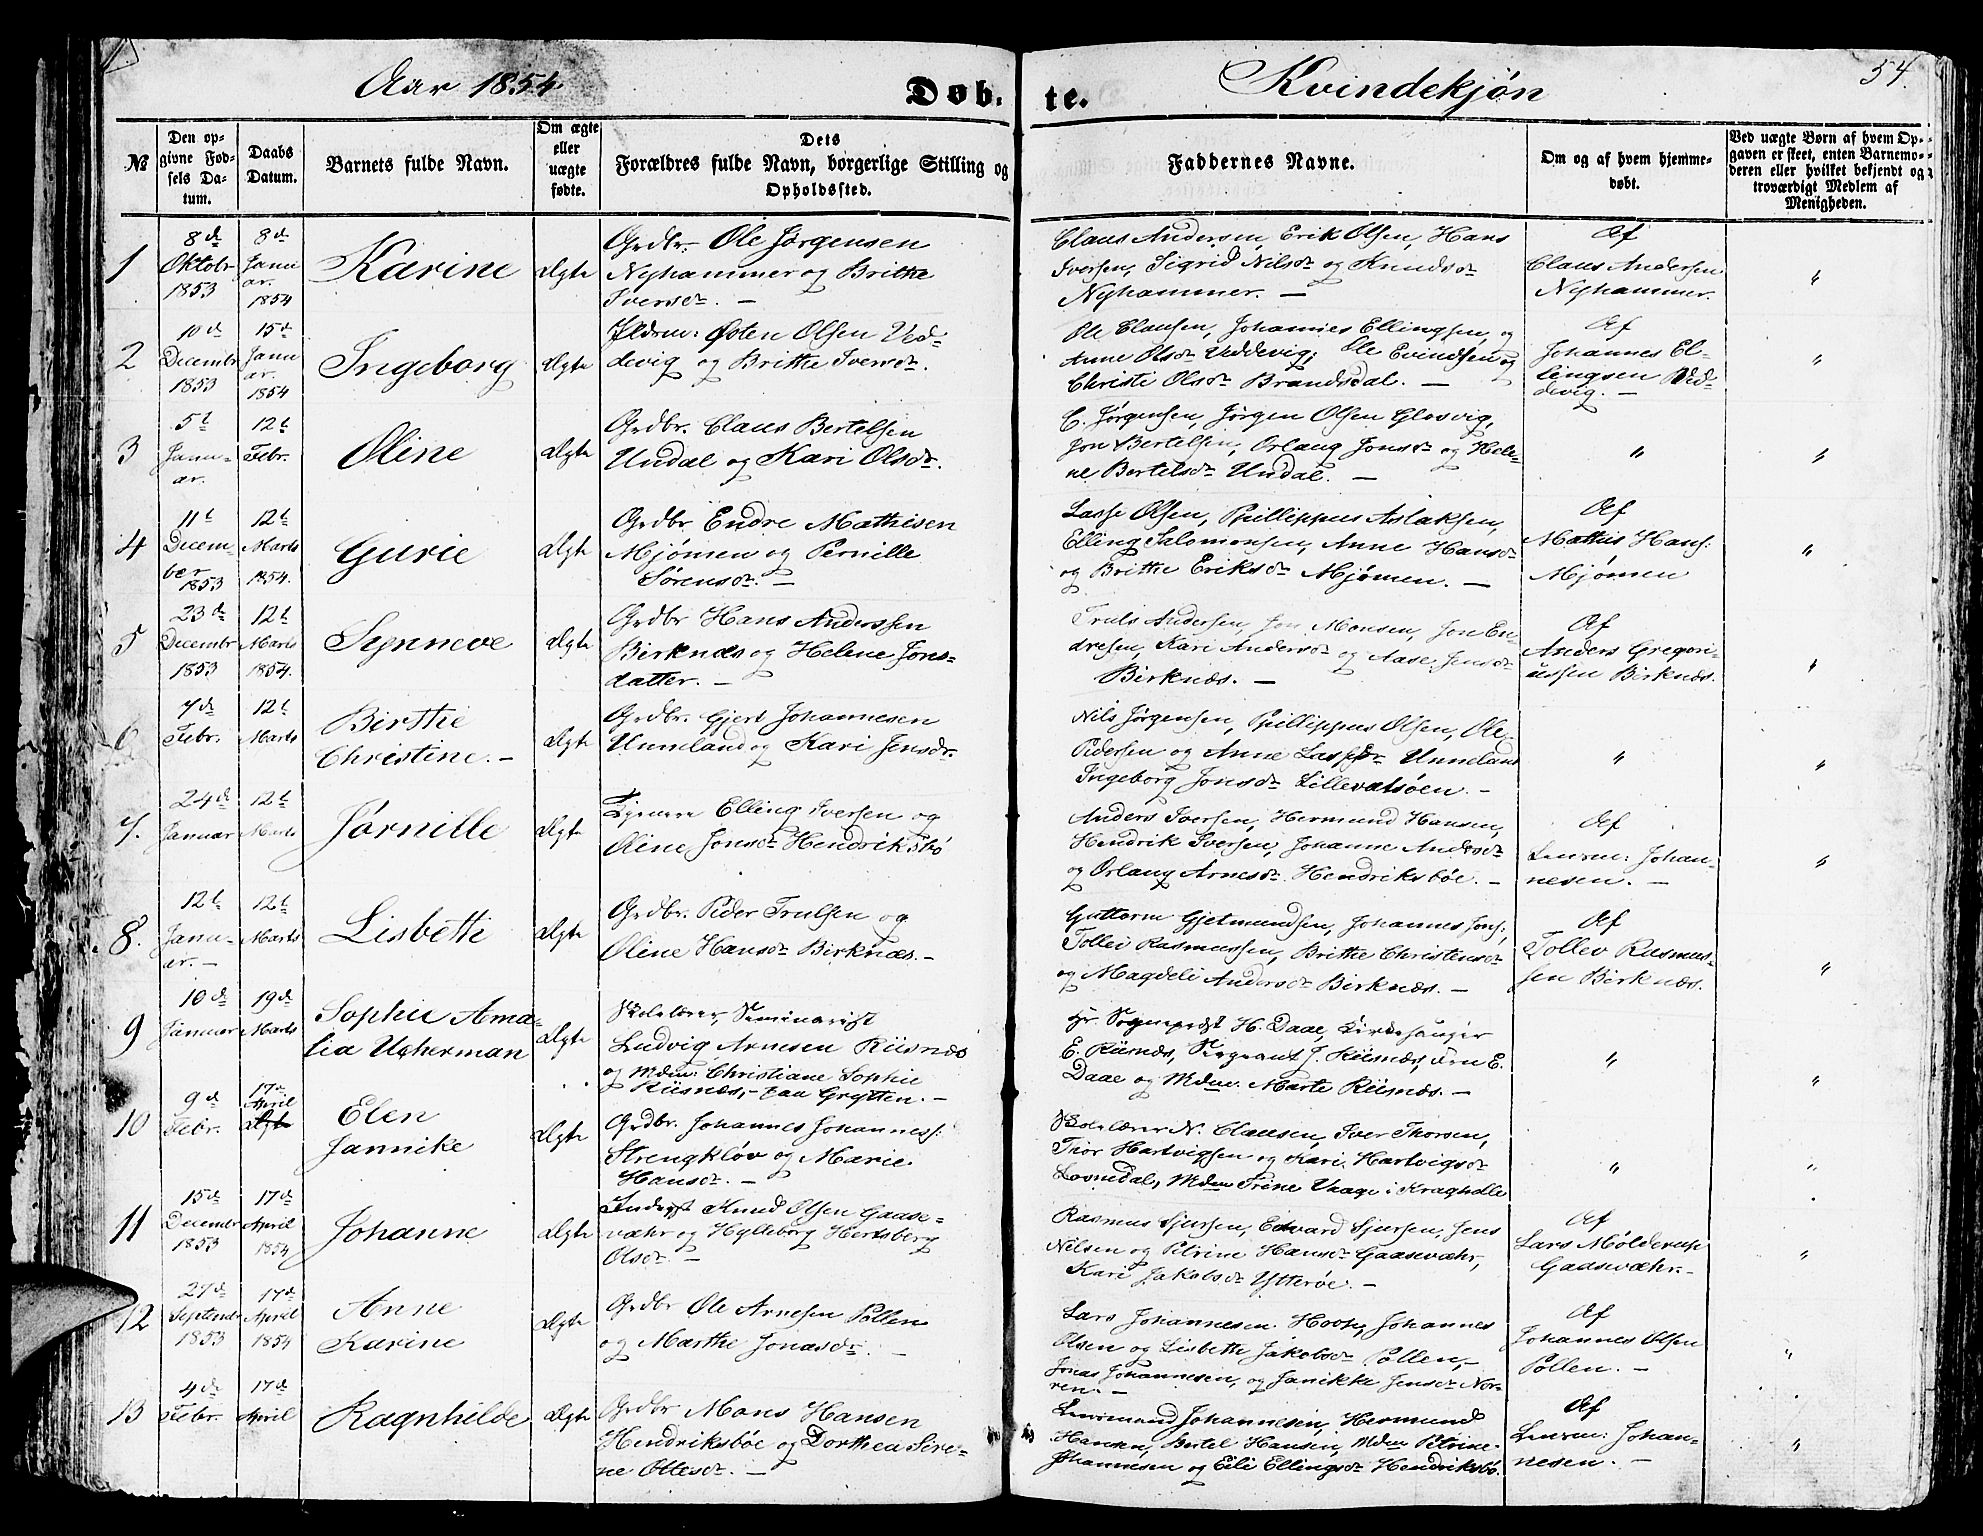 Aar 1854
Døb-
te.
Kvindekjøn
54.
№
Den op-
givne Fød-
sels Da-
tum.
Daabs
Datum.
Barnets fulde Navn.
Om ægte
eller
uægte
fødte.
Dets
Forældres fulde Navn, borgerlige Stilling og
Opholdssted.
Faddernes Navne.
Om og af hvem hjemme-
døbt.
Ved uægte Børn af hvem Op-
gaven er skeet, enten Barnemo-
deren eller hvilket bekjendt og
troværdigt Medlem af
Menigheden.
1
8d
Oktobr
1853
8d
Janu
ar.
1854
Karine
Ægte
Grdbr. Ole Jørgensen
Nyhammer og Britthe
Iversdr. —
Claus Andersen, Erik Olsen, Hans
Iversen, Sigrid Nilsdr og Knudsdr
Nyhammer. —
Af
Claus Andersen
Nyhammer.
"
2
10d
Decembr
1853
15d
Janu
ar.
1854
Ingeborg
Ægte
Østen Olsen Ved-
devig og Britthe Iversdr.
Ole Clausen, Johannes Ellingsen, og
Anne Olsdr Veddevig; Ole Evindsen og
Christi Olsdr Brandsdal. —
Af
Johannes El-
lingsen Ved-
devig. —
"
3
5t
Janu-
ar.
12t
Febr.
Oline
Ægte
Grdbr. Claus Bertelsen
Undal og Kari Olsdr.
C. Jørgensen, Jørgen Olsen Glosvig,
Jon Bertelsen, Orlaug Jonsdr og Hele-
ne Bertelsdr Undal. —
"
"
4
11t
Decem-
ber
1853
12t
Marts
1854.
Gurie
Ægte
Grdbr Endre Mathisen
Mjømen og Pernille
Sørensdr. —
Lasse Olsen, Phillippus Aslaksen,
Elling Salomonsen, Anne Hansdr
og Britthe Eriksdr Mjømen. —
Af
Mathis Hans:
Mjømen
"
5
23d
Decembr
1853
12t
Marts
1854.
Synneve
Ægte
Grdbr Hans Anderssen
Birknæs og Helene Jons-
datter. —
Truls Andersen, Jon Monsen, Jon En-
dresen, Kari Andersdr og Aase Jensdr
Birknæs. —
Af
Anders Gregori-
ussen Birknæs.
"
6
7d
Febr.
12t
Marts
Birthe
Christine. —
Ægte
Grdbr. Gjert Johannesen
Unneland og Kari Jensdr.
Nils Jørgensen, Phillippus Olsen, Ole
Pedersen og Anne Lassedr Unneland
Ingeborg Jonsdr Lillevatsøen. —
"
"
7.
24d
Januar
12t
Marts
Jørnille
Ægte
Elling Iversen og
Oline Jonsdr Hendriksbø
Anders Iversen, Hermund Hansen,
Hendrik Iversen, Johanne Andersdr
og Orlaug Arnesdr Hendriksbøe. —
Af
Lensm: Johan-
nesen. —
"
8.
12t
Janu-
ar. —
12t
Marts
Lisbeth
Ægte
Grdbr. Peder Trulsen og
Oline Hansdr Birknæs. —
Guttorm Gjetmundsen, Johannes Jons:,
Tollev Rasmussen, Britthe Christensdr
og Magdeli Andersdr Birknæs. —
Af
Tollev Rasmus-
sen Birknæs.
"
9
10d
Januar
19d
Marts
Sophie Ama-
lia Ucherman
Ægte
Skolelærer, Seminarist
Ludvig Arnesen Riisnæs
og Mdm: Christiane Sophie
Riisnæs, — paa Grytten. —
Hr. Sogneprest H. Daae, Kirkesanger
E. Riisnæs, Sergeant J. Riisnæs, Frn E.
Daae og Mdm. Marte Riisnæs. —
"
"
10
9d
Febr.
17d
April
Ægte
Elen
Jannike
Ægte
Grdbr. Johannes Johanness:
Strengkløv og Marie
Hansdr. —
Skolelærer N. Clausen, Iver Thorsen,
Thor Hartvigsen og Kari Hartvigsdr
Lovndal, Mdm Trine Vaage i Kraghelle
"
"
11
15d
Decembr
1853
17d
April
1854
Johanne
Ægte
Inderst Knud Olsen Gaase-
væhr og Hylleborg Hertsberg
Olsdr. —
Rasmus Sjursen, Edvard Sjursen, Jens
Nilsen og Petrine Hansdr Gaasevæhr,
Kari Jakobsdr Ytterøe. —
Af
Lars Mølderup
Gaasevæhr. —
"
12
27d
Septembr
1853
17d
April
1854
Anne
Karine
Ægte
Grdbr Ole Arnesen Pollen
og Marthe Jonasdr. —
Lars Johannesen Hope, Johannes
Olsen og Lisbeth Jakobsdr Pollen, —
Jonas Johannesen, og Janikke Jensdr Nor-
ren. —
Af
Johannes Olsen
Pollen. —
"
13
4d
Febr.
17d
April
Ragnhilde
Ægte
Grdbr Mons Hansen
Hendriksbøe og Dorthea Sire-
ne Ottesdr. —
Lensmand Johannesen, Hermund
Hansen, Bertel Hansen, Mdm Petrine
Johannesen og Eili Ellingsdr Hendriksbø.
Af
Lensm: Johan-
nesen. —
"